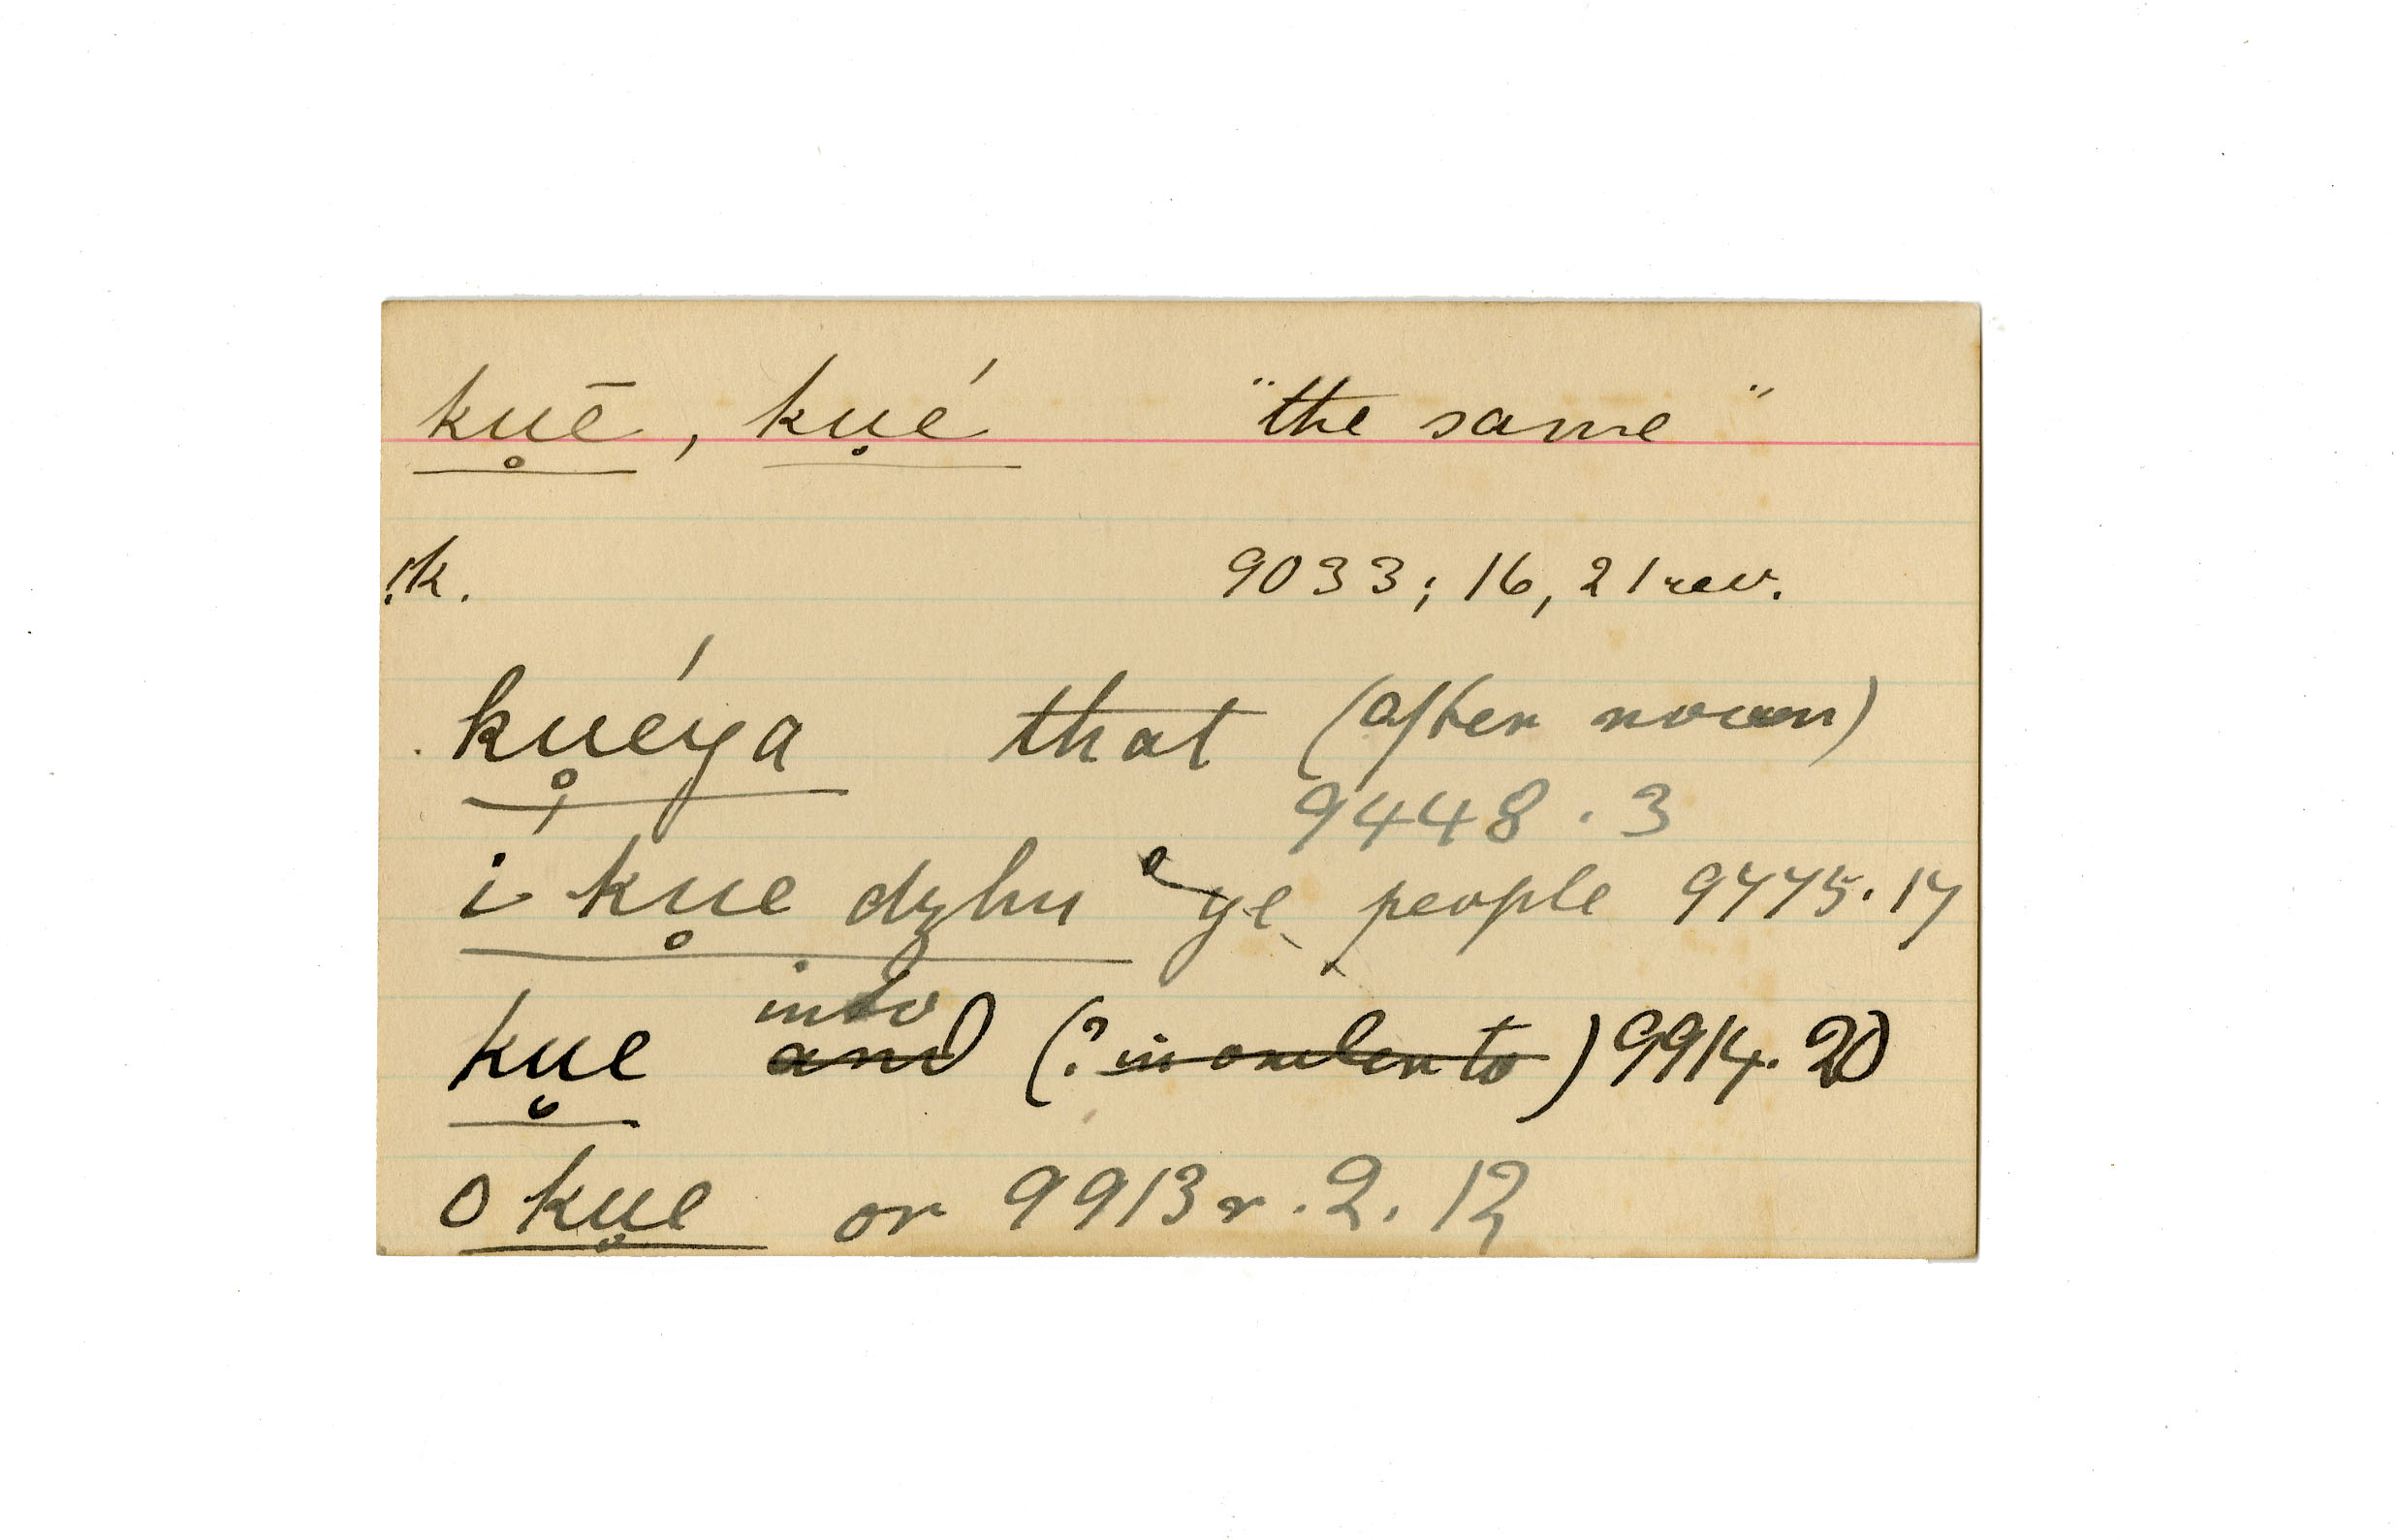 ku̥ē, ku̥é "the same"
!k. 9033; 16, 21 rev.
ku̥éya that (after noun)
9448.3
i ku̥e dzhu ye people 9775.17
into
ku̥e and (? in order to) 9914.20
o ku̥e or 9913r.2.12